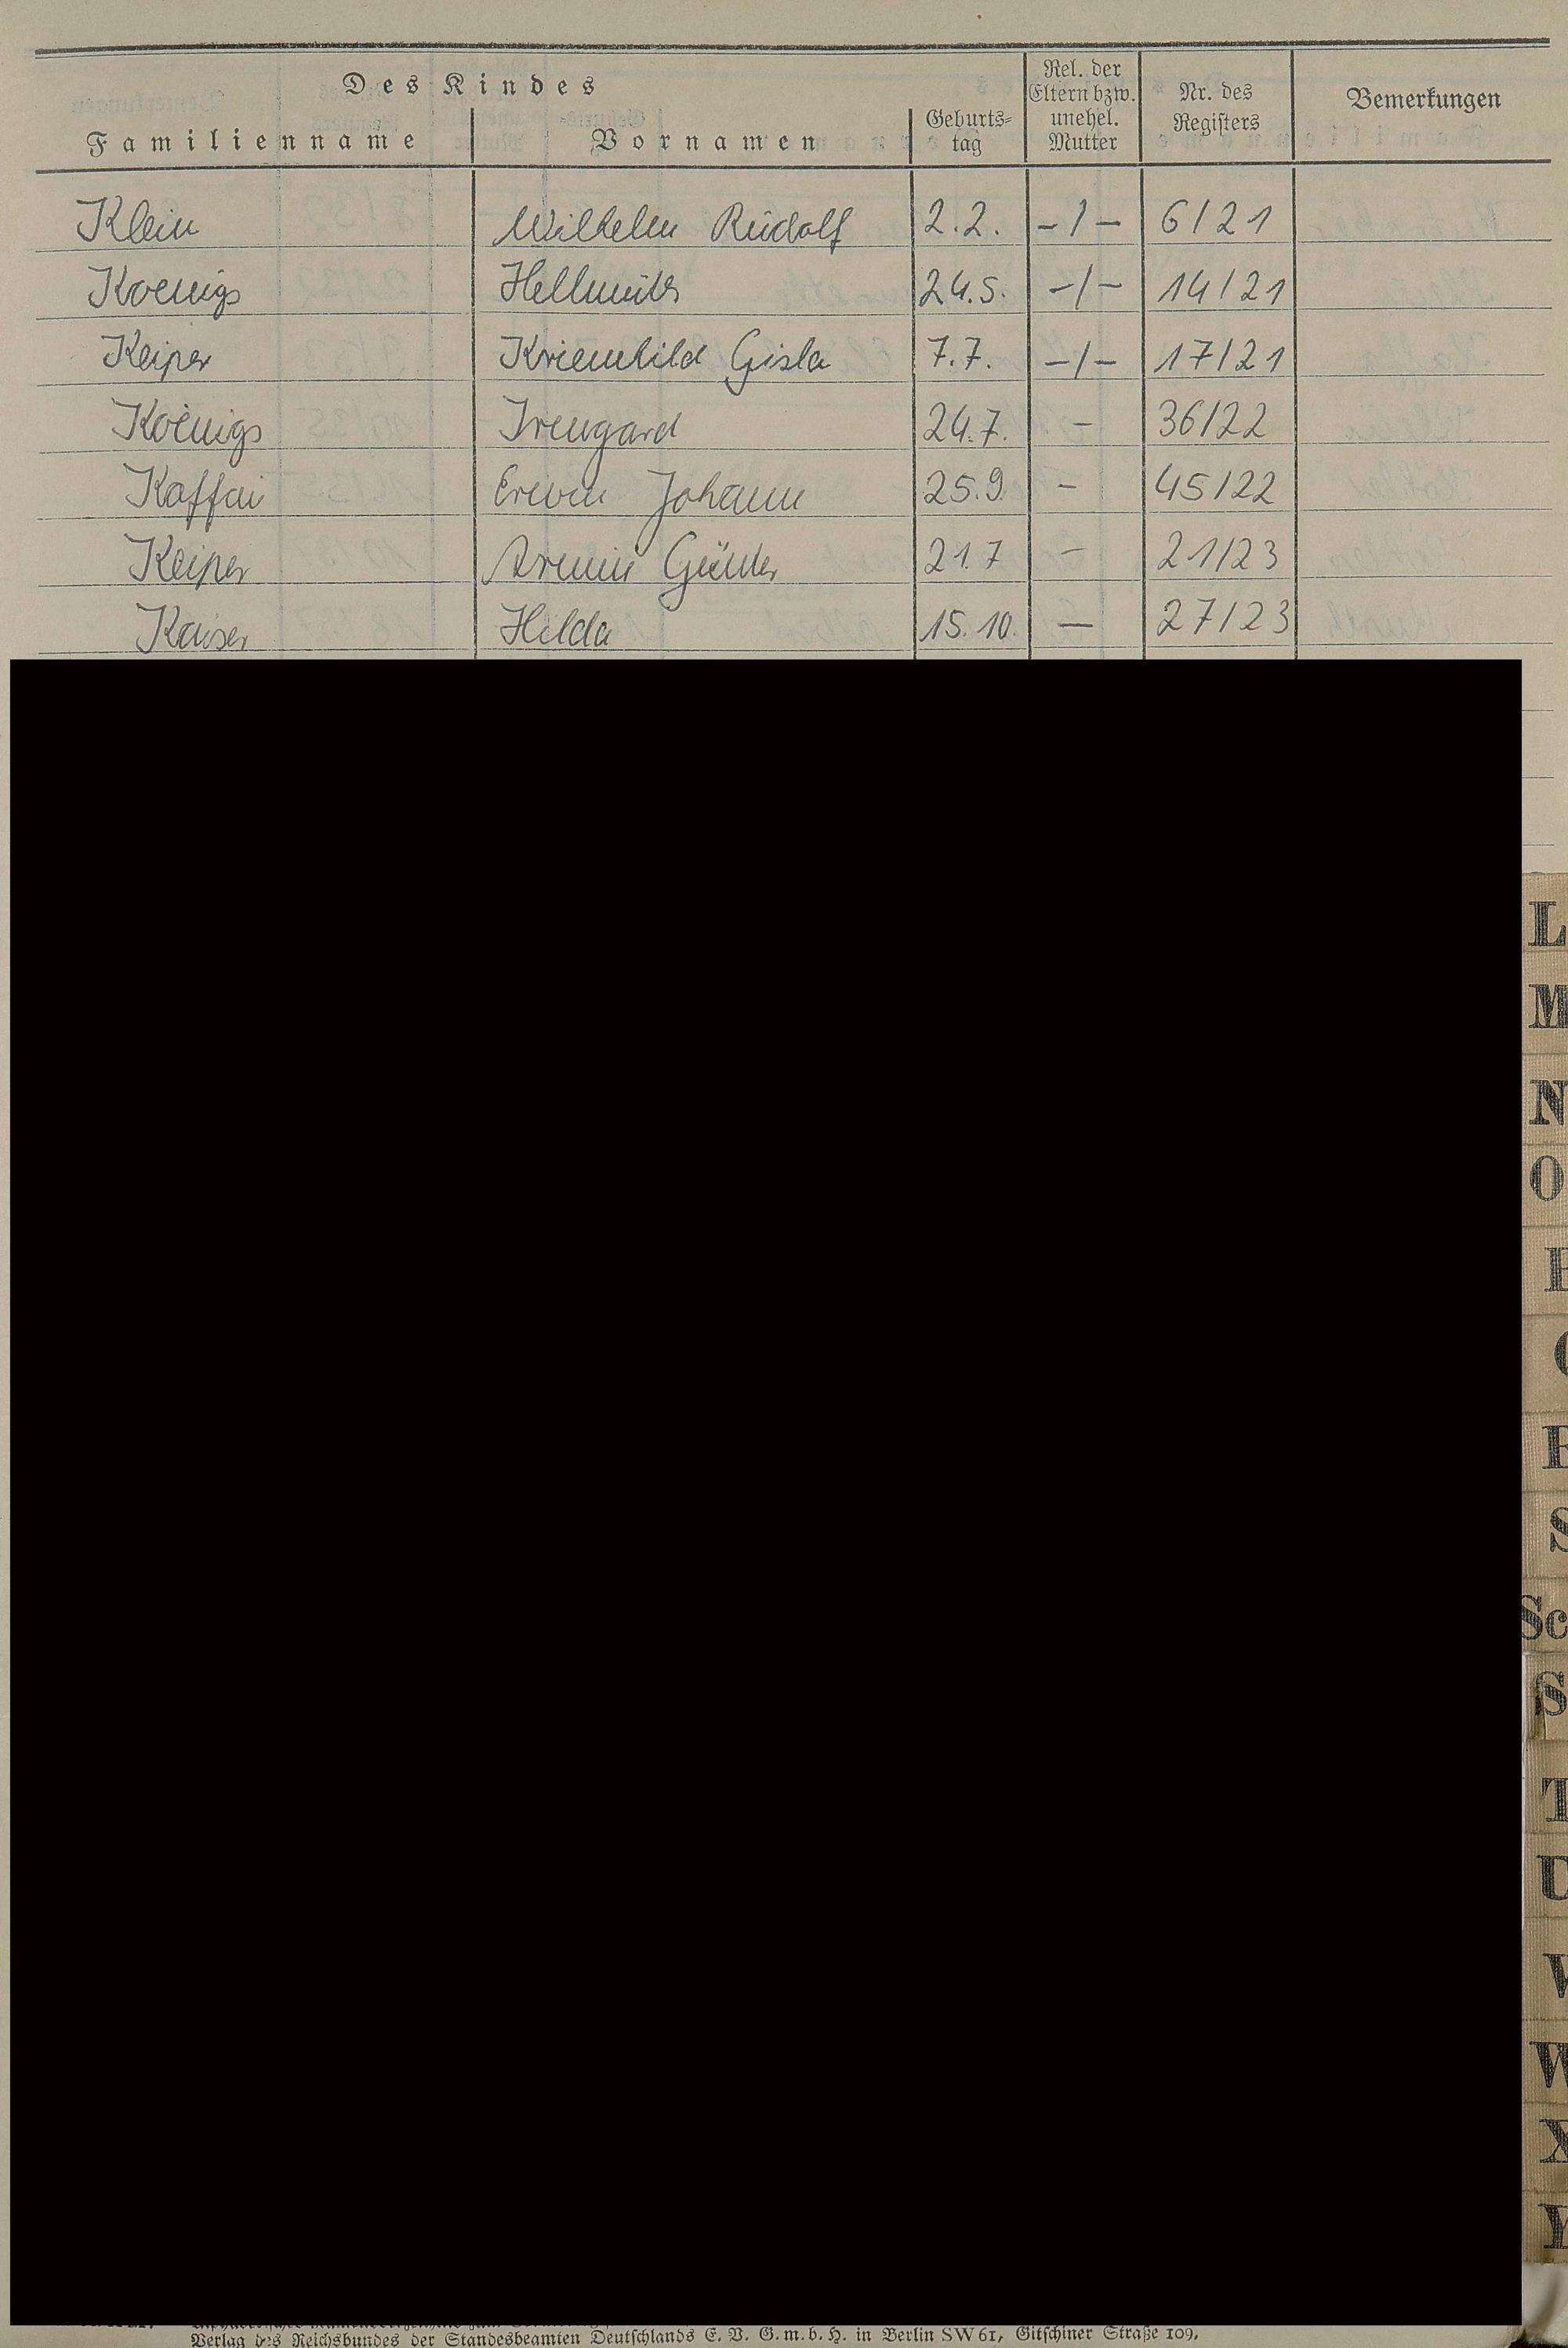 Des Kindes
Familienname
Vornamen
Geburts=
tag
Rel. der
Eltern bzw.
unehel.
Mutter
Nr. des
Registers
Bemerkungen
Klein Wilhelm Rudolf 2.2. -/- 6/21
Koenigs Hellmuth 24.5. -/- 14/21
Keiper Kriemhild Gisla 7.7. -/- 17/21
Koenigs Irmgard 24.7. - 36/22
Erwin Johann 25.9 - 45/22
Keiper Armin Günter 21.7 - 21/23
Kaiser Hilda 15.10. - 27/23
L
M
N
O
S
Sc
T
U
V
W
X
Y
Verlag des Reichsbundes der Standesbeamten Deutschlands E. V. G. m. b. H. in Berlin SW 61, Gitschiner Straße 109.